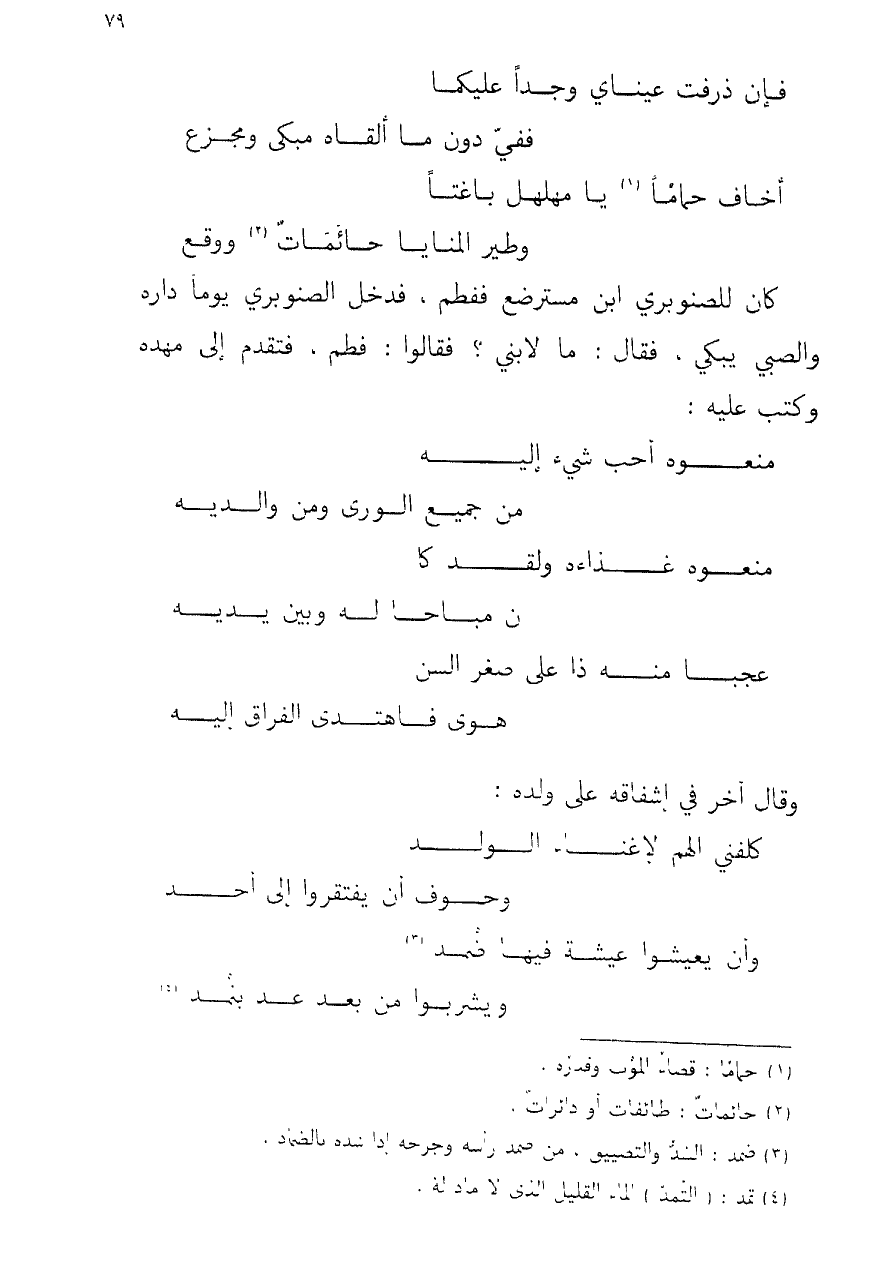 ٧٩
فإن ذرفت عيناي وجداً عليكما
ففيّ دون ما ألقاه مبكى ومجزع
أخاف حماماً (١) يا مهلهل باغتاً
وطير المنايا حائمَاتٌ (٢) ووقع
كان للصنوبري ابن مسترضع ففطم ، فدخل الصنوبري يوماً داره
والصبي يبكي ، فقال : ما لابني ؟ فقالوا : فطم ، فتقدم إلى مهده
وكتب عليه :
منعوه أحب شيء إليه
من جميع الورى ومن والديه
منعوه غذاءه ولقد كا
ن مباحاً له وبين يديه
عجبا منه ذا على صغر السن
هوى فاهتدى الفراق إليه
وقال آخر في إشفاقه على ولده :
كلفني الهم لإغناء الولد
وخوف أن يفتقروا إلى أحد
وأن يعيشوا عيشة فيها ضُمد (٣)
ويشربوا من بعد عد بثُمد (٤)
(١) حماماً : قضاء الموت وقدره .
(٢) حائماتٌ : طائفات أو دائراتٌ .
(٣) ضمد : الشدُّ والتضييق ، من ضمد رأسه وجرحه إذا شده بالضماد .
(٤) ثمد : ( الثَّمد ) الماء القليل الذي لا مادة له .